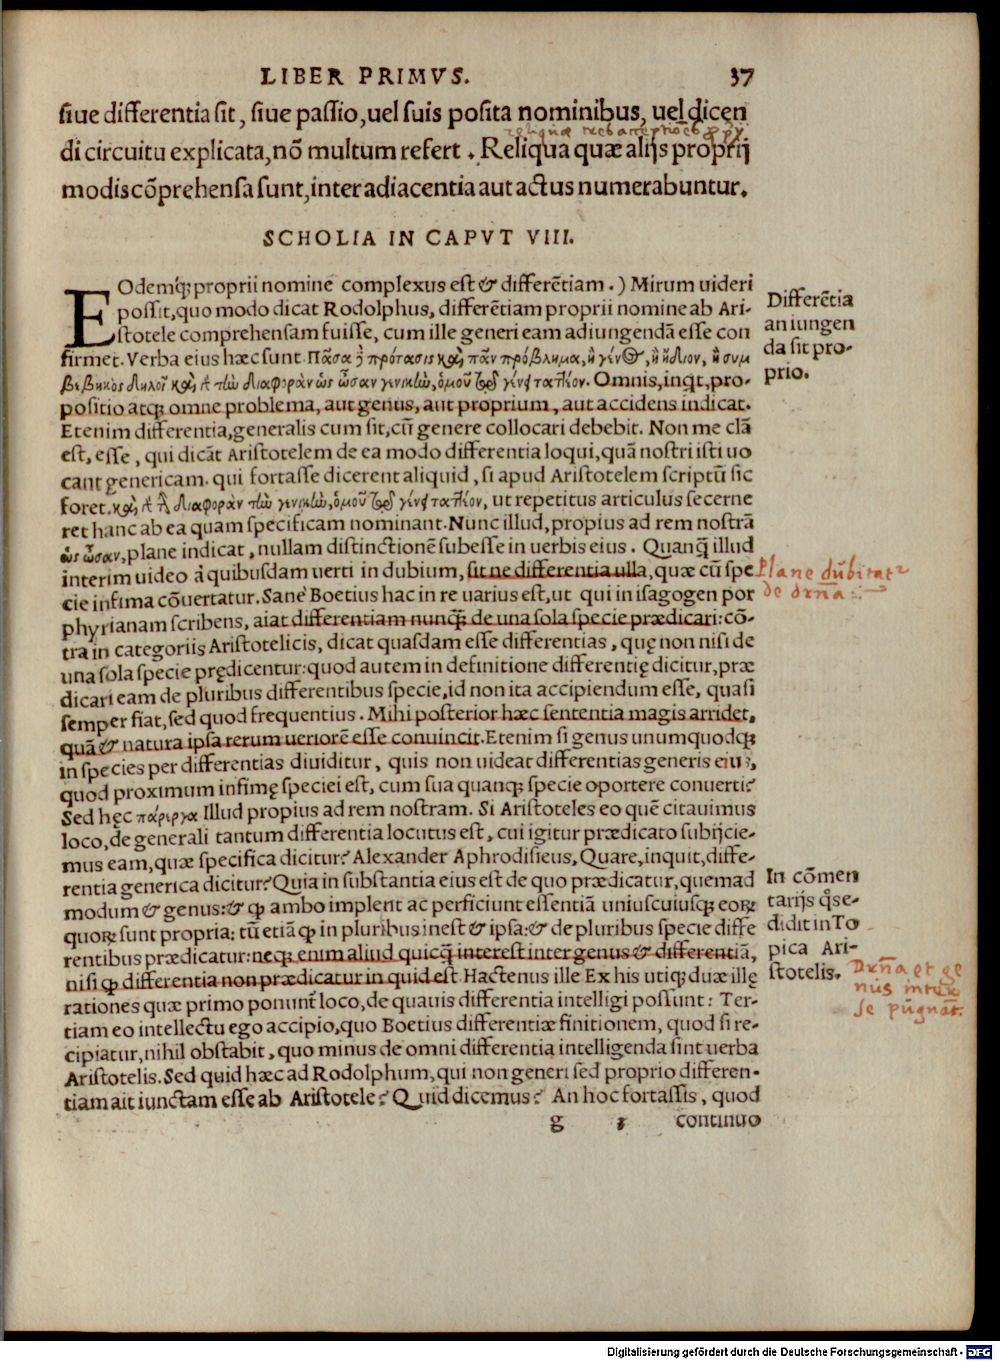 LIBER PRIMVS. 37
siue differentia sit, siue passio, uel suis posita nominibus, uel dicen
di circuitu explicata, nō multum refert. Reliqua quæ alijs proprij
modis cōprehensa sunt, inter adiacentia aut actus numerabuntur.
SCHOLIA IN CAPVT VIII.
EOdemq́; proprii nomine complexus est & differētiam.) Mirum uideri
possit, quo modo dicat Rodolphus, differētiam proprii nomine ab Ari-
stotele comprehensam fuisse, cum ille generi eam adiungendā esse con
firmet. Verba eius hæc sunt. Πᾶσα ἢ πρότασις καὶ πᾶν πρόβλημα, ἢ γένος, ἢ ἴδιον, ἢ συμ
βεβηκὸς δηλοῖ καὶ τὴν διαφορὰν ὡς οὖσαν γενικὴν, ὁμοῦ τῷ γένει τακτέον. Omnis, inqt, pro-
positio atq; omne problema, aut genus, aut proprium, aut accidens indicat.
Etenim differentia, generalis cum sit, cū genere collocari debebit. Non me clā
est, esse, qui dicāt Aristotelem de ea modo differentia loqui, quā nostri isti uo
cant genericam. qui fortasse dicerent aliquid, si apud Aristotelem scriptū sic
foret. καὶ διαφορὰν τὴν γενικὴν, ὁμοῦ τῷ γένει τακτέον, ut repetitus articulus secerne
ret hanc ab ea quam specificam nominant. Nunc illud, propius ad rem nostrā
ὡς οὖσαν, plane indicat, nullam distinctionē subesse in uerbis eius. Quanq̃ illud
interim uideo à quibusdam uerti in dubium, sit ne differentia ulla, quæ cū spe
cie infima cōuertatur. Sane Boetius hac in re uarius est, ut qui in isagogen por
phyrianam scribens, aiat differentiam nunq̃ de una sola specie prædicari: cō-
tra in categoriis Aristotelicis, dicat quasdam esse differentias, quę non nisi de
una sola specie prędicentur: quod autem in definitione differentię dicitur, præ
dicari eam de pluribus differentibus specie, id non ita accipiendum esse, quasi
semper fiat, sed quod frequentius. Mihi posterior hæc sententia magis arridet,
quā & natura ipsa rerum ueriorē esse conuincit. Etenim si genus unumquodq;
in species per differentias diuiditur, quis non uideat differentias generis eius,
quod proximum infimę speciei est, cum sua quanq; specie oportere conuerti?
Sed hęc πάρεργα Illud propius ad rem nostram. Si Aristoteles eo quē citauimus
loco, de generali tantum differentia locutus est, cui igitur prædicato subijcie-
mus eam, quæ specifica dicitur? Alexander Aphrodisieus, Quare, inquit, diffe-
rentia generica dicitur? Quia in substantia eius est de quo prædicatur, quemad
modum & genus: & ꝙ ambo implent ac perficiunt essentiā uniuscuiusq; eorꝝ
quorꝝ sunt propria: tū etiā ꝙ in pluribus inest & ipsa: & de pluribus specie diffe
rentibus prædicatur: neq; enim aliud quicq̃ interest inter genus & differentiā,
nisi ꝙ differentia non prædicatur in quid est. Hactenus ille Ex his utiq; duæ illę
rationes quæ primo ponunt̃ loco, de quauis differentia intelligi possunt: Ter-
tiam eo intellectu ego accipio, quo Boetius differentiæ finitionem, quod si re-
cipiatur, nihil obstabit, quo minus de omni differentia intelligenda sint uerba
Aristotelis. Sed quid hæc ad Rodolphum, qui non generi sed proprio differen-
tiam ait iunctam esse ab Aristotele? Quid dicemus? An hoc fortassis, quod
g continuo
Differētia
an iungen
da sit pro-
prio.
Plane dubitat
de drn̄a
In cōmen
tarijs q̊s e-
didit in To
pica Ari-
stotelis.
Drn̄a et ge
nus inter
se pugnāt.
Digitalisierung gefördert durch die Deutsche Forschungsgemeinschaft - DFG